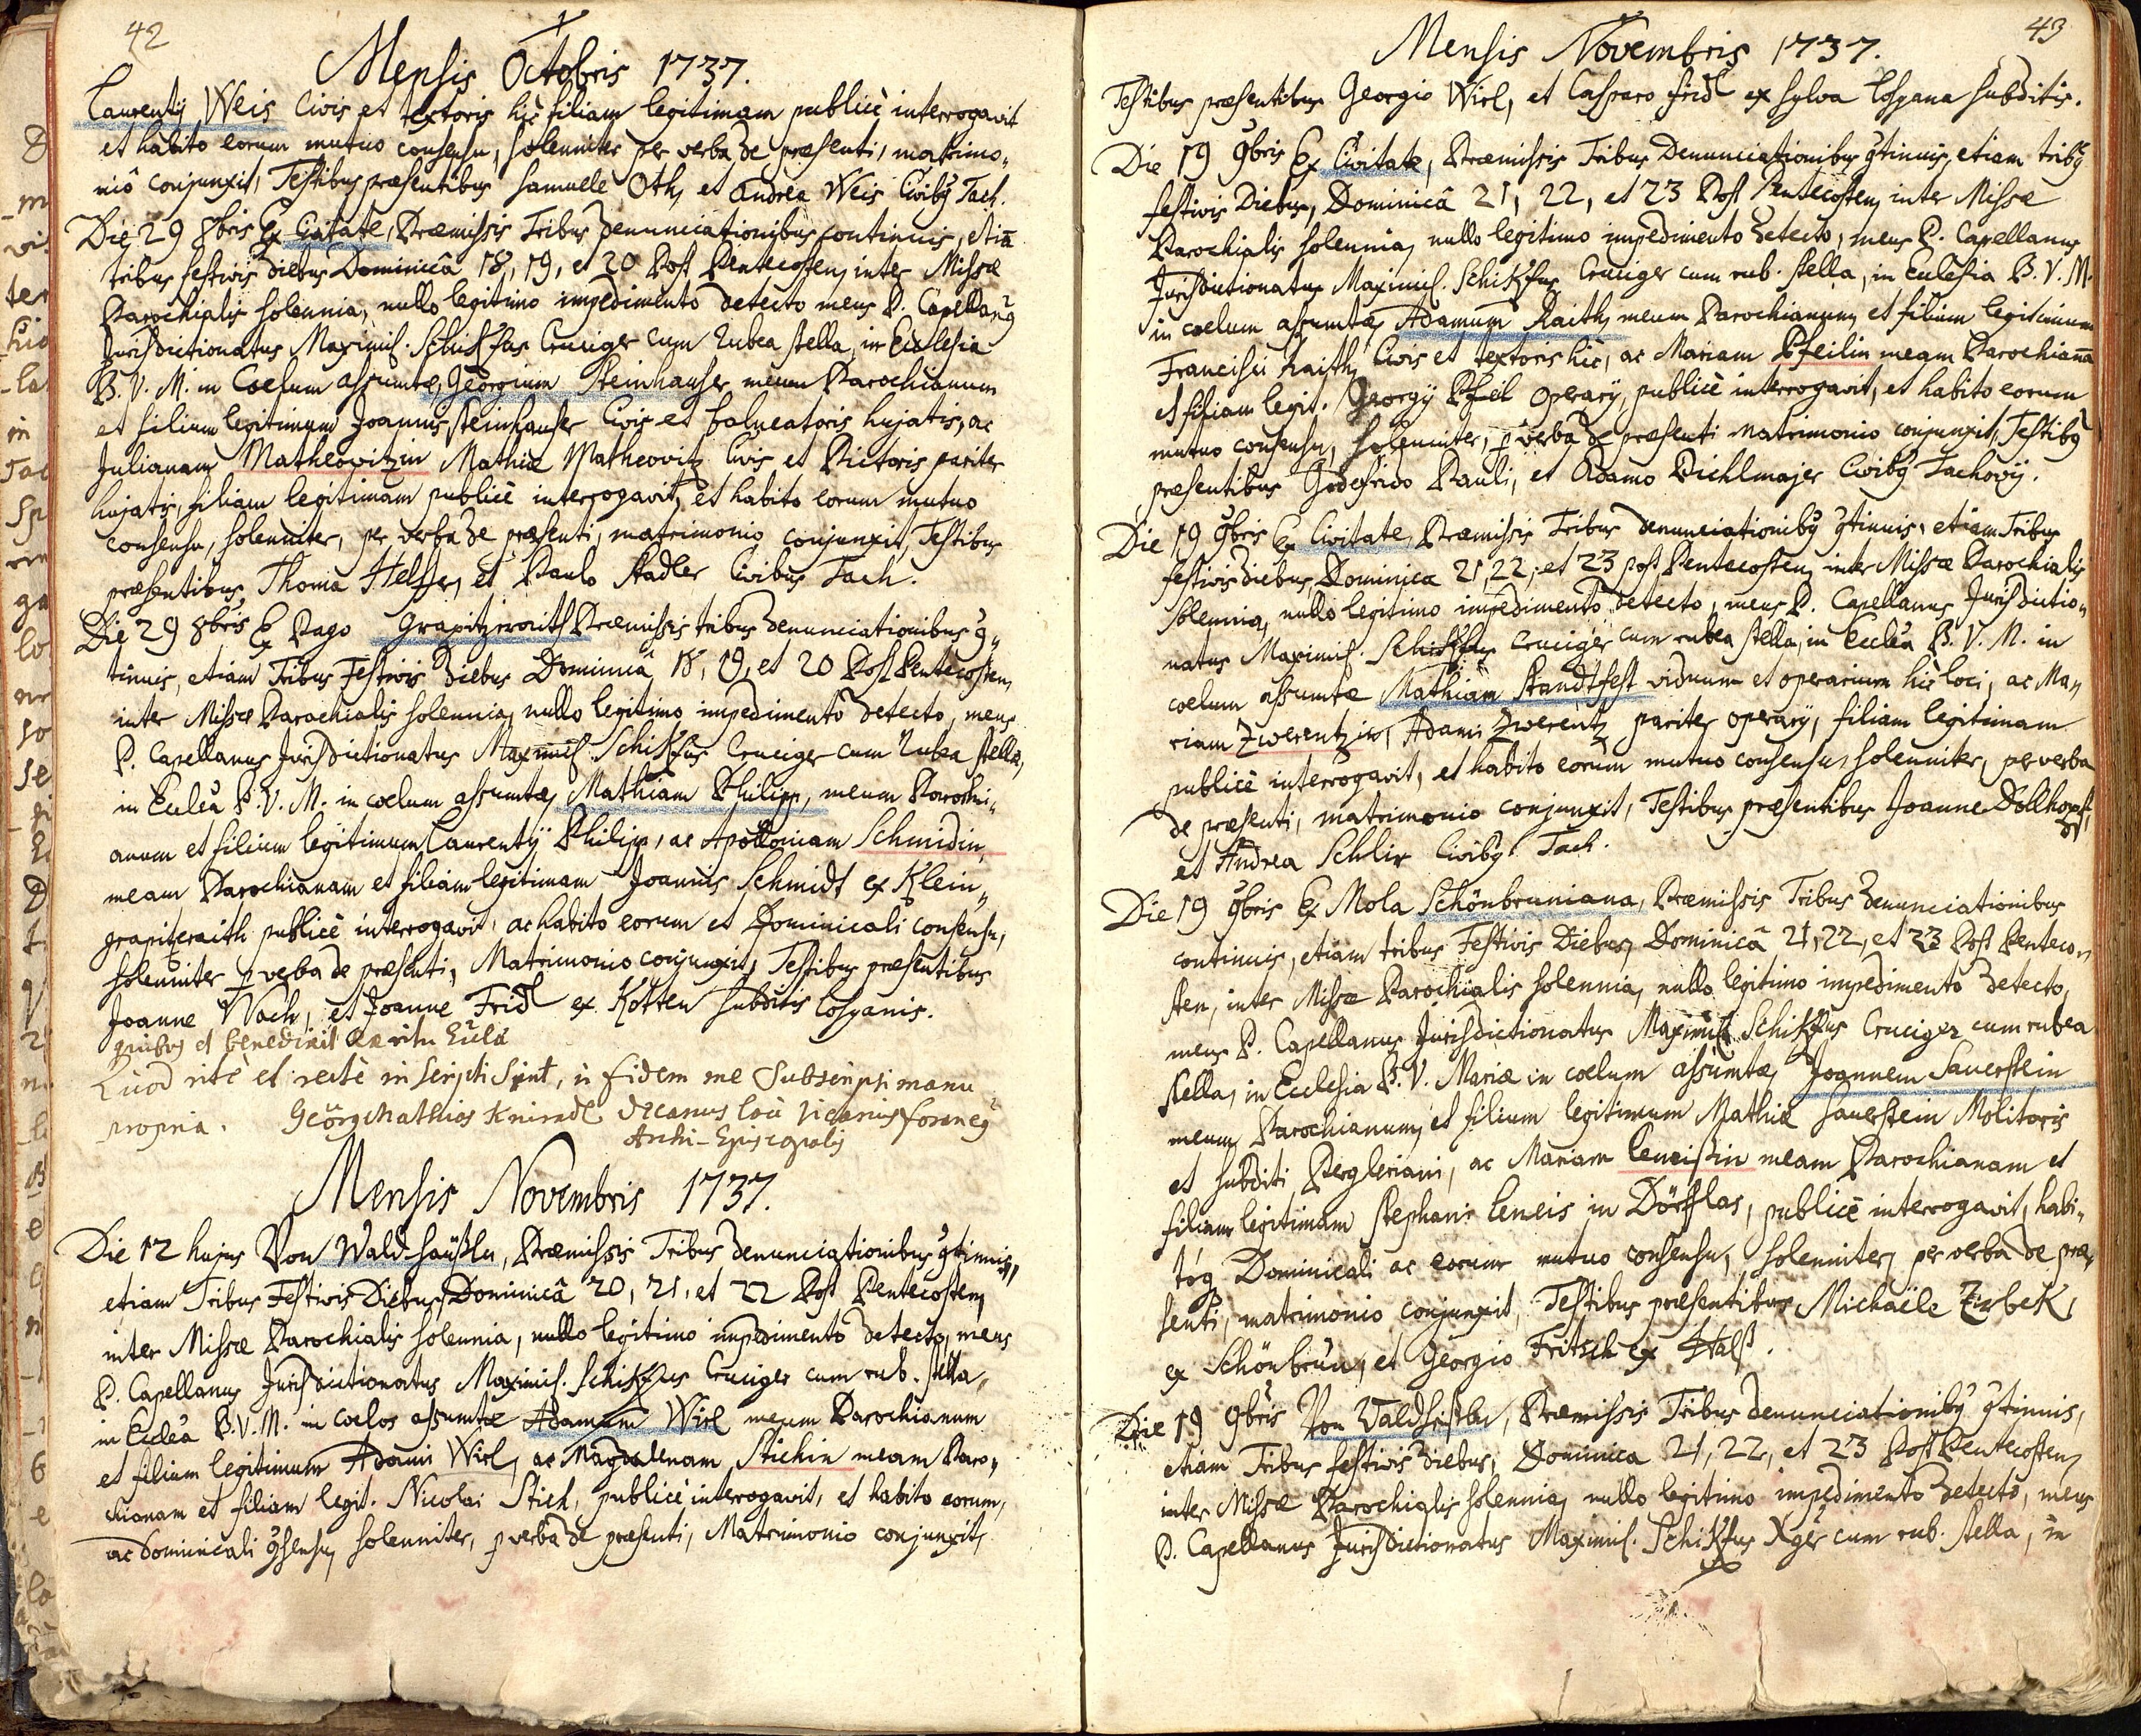 42
Mensis Octobris 1737.
Laurentij Weis Civis et textoris hic filiam legitimam publicè interrogavit
et habito eorum mutuo consensu, solenniter per verba de præsenti, matrimo„
niô conjunxit, Testibus præsentibus Samuele Oth, et Andrea Weis Civibꝰ Tach.
Die 29 8bris Ex Civitate, Præmissis Tribus denunciationibus continuis, etiã
tribus festivis diebus Dominicâ 18, 19, et 20 Post Pentecosten, inter Missæ
Parochialis solennia, nullo legitimo impedimento detecto meus P. Capellanꝰ
Jurisdictionatus Maximil. Schikfus Cruciger cum rubea stella, in Ecclesia
B. V. M. in Coelum assumtæ, Georgium Steinhauser meum Parochianum
et filium legitimum Joannis Steinhauser Civis et balneatoris hujatis, ac
Julianam Matheovitzin Mathiæ Matheovitz Civis et Pictoris pariter
hujatis, filiam legitimam publicè interrogavit, et habito eorum mutuo
consensu, solenniter, per verba de præsenti, matrimonio conjunxit, Testibus
præsentibus, Thoma Helffer, et Paulo Stadler Civibus Tach.
Die 29 8bris Ex Pago Grapitzreith Præmissis tribus denunciationibus ꝯ„
tinuis, etiam Tribus Festivis diebus Dominicâ 18, 19, et 20 Post Pentecosten,
inter Missæ Parochialis solennia, nullo legitimo impedimento detecto, meus
P. Capellanus Jurisdictionatus Maximil. Schikfus Cruciger cum rubea stella,
in Eccleâ B. V. M. in coelum assumtæ, Mathiam Philipp, meum Parochi„
anum et filium legitimum Laurentij Philipp, ac Apolloniam Schmidin,
meam Parochianam et filiam legitimam Joannis Schmidt ex Klein„
grapitzraith publicè interrogavit, ac habito eorum et Dominicali consensu,
solenniter ꝑ verba de præsenti, Matrimonio conjunxit, Testibus præsentibus
Joanne Woch, et Joanne Fridl ex Kotten subditis Cosganis.
quibꝰ et benedixit ex ritu Eclâ
Quod ritè et rectè inscripti sint, in fidem me subscripsi manu
propria. Geörg Mathias Knirndl Decanus loci Vicarius foraneꝰ
Archi-Episcopalis
Mensis Novembris 1737.
Die 12 hujus Von Wald-häußln, Præmissis Tribus denunciationibus ꝯtinuis,
etiam Tribus Festivis Diebus Dominicâ 20, 21, et 22 Post Pentecosten,
inter Missæ Parochialis solennia, nullo legitimo impedimento detecto, meus
P. Capellanus Jurisdictionatus Maximil. Schikfus Cruciger cum rub. stella,
in Eccleâ B. V. M. in coelos assumtæ Adamum Wirl meum Parochianum
et filium legitimum Adami Wirl, ac Magdalenam Stichin meam Paro„
chianam et filiam legit. Nicolai Stich, publicè interrogavit, et habito eorum,
ac dominicali ꝯsensu, solenniter, ꝑ verba de præsenti, Matrimonio conjunxit,
43
Mensis Novembris 1737.
Testibus præsentibus Georgio Wirl, et Casparo Fridl ex sylva Cosgana subditis.
Die 19 9bris Ex Civitate, Præmissis Tribus Denunciationibus ꝯtinuis, etiam tribꝰ
festivis Diebus, Dominicâ 21, 22, et 23 Post Pentecosten, inter Missæ
Parochialis solennia, nullo legitimo impedimento detecto, meus P. Capellanus
Jurisdictionatus Maximil. Schikfus Cruciger cum rub. stella, in Eclesia B. V. M.
in coelum assumtæ, Adamum Raith, meum Parochianum, et filium legitimum
Francisci Raith, Civis et textoris hic, ac Mariam Pfeilin meam Parochianã
et filiam legit. Georgij Pfeil Operarij, publicè interrogavit, et habito eorum
mutuo consensu, solenniter, ꝑ verba de præsenti matrimonio conjunxit, Testibꝰ
præsentibus Godefrido Pauli, et Adamo Pichlmajer Civibꝰ Tachovij.
Die 19 9bris Ex Civitate, Præmissis Tribus denunciationibꝰ ꝯtinuis, etiam Tribus
festivis diebus, Dominica 21, 22, et 23 post Pentecosten, inter Missæ Parochialis
solennia, nullo legitimo impedimento detecto, meus P. Capellanus Jurisdictio„
natus Maximil. Schikfus Cruciger cum rubea stella, in Eccleâ B. V. M. in
coelum assumtæ Mathiam Standtfest viduum et operarium hic loci, ac Ma„
riam Zwerentzin, Adami Zwerentz pariter operarij, filiam legitimam
publicè interrogavit, et habito eorum mutuo consensu, solenniter, per verba
de præsenti, matrimonio conjunxit, Testibus præsentibus Joanne Dollhopf,
et Andrea Schlir Civibꝰ Tach.
Die 19 9bris Ex Mola Schönbruniana, Præmissis Tribus denunciationibus
continuis, etiam tribus Festivis Diebus, Dominicâ 21, 22, et 23 Post Penteco„
sten, inter Missæ Parochialis solennia, nullo legitimo impedimento detecto,
meus P. Capellanus Jurisdictionatus Maximil. Schikfus Cruciger cum rubea
stella, in Ecclesia B. V. Mariæ in coelum assumtæ, Joannem Sauerstein
meum Parochianum, et filium legitimum Mathiæ Sauerstein Molitoris
et subditi Pergleriani, ac Mariam Leneißin meam Parochianam et
filiam legitimam Stephani Leneis in Dörfflas, publicè interrogavit, habi„
tóq Dominicali ac eorum mutuo consensu, solenniter, per verba de præ„
senti, matrimonio conjunxit, Testibus præsentibus, Michaële Zirbek,
ex Schönbrun, et Georgio Fritsch ex Halß.
Die 19 9bris Von Valdheißln, Præmissis Tribus denunciationibꝰ ꝯtinuis,
etiam Tribus festivis diebus, Dominica 21, 22, et 23 Post Pentecosten,
inter Missæ Parochialis solennia, nullo legitimo impedimento detecto, meus
P. Capellanus Jurisdictionatus Maximil. Schikfus Xger cum rub. stella, in